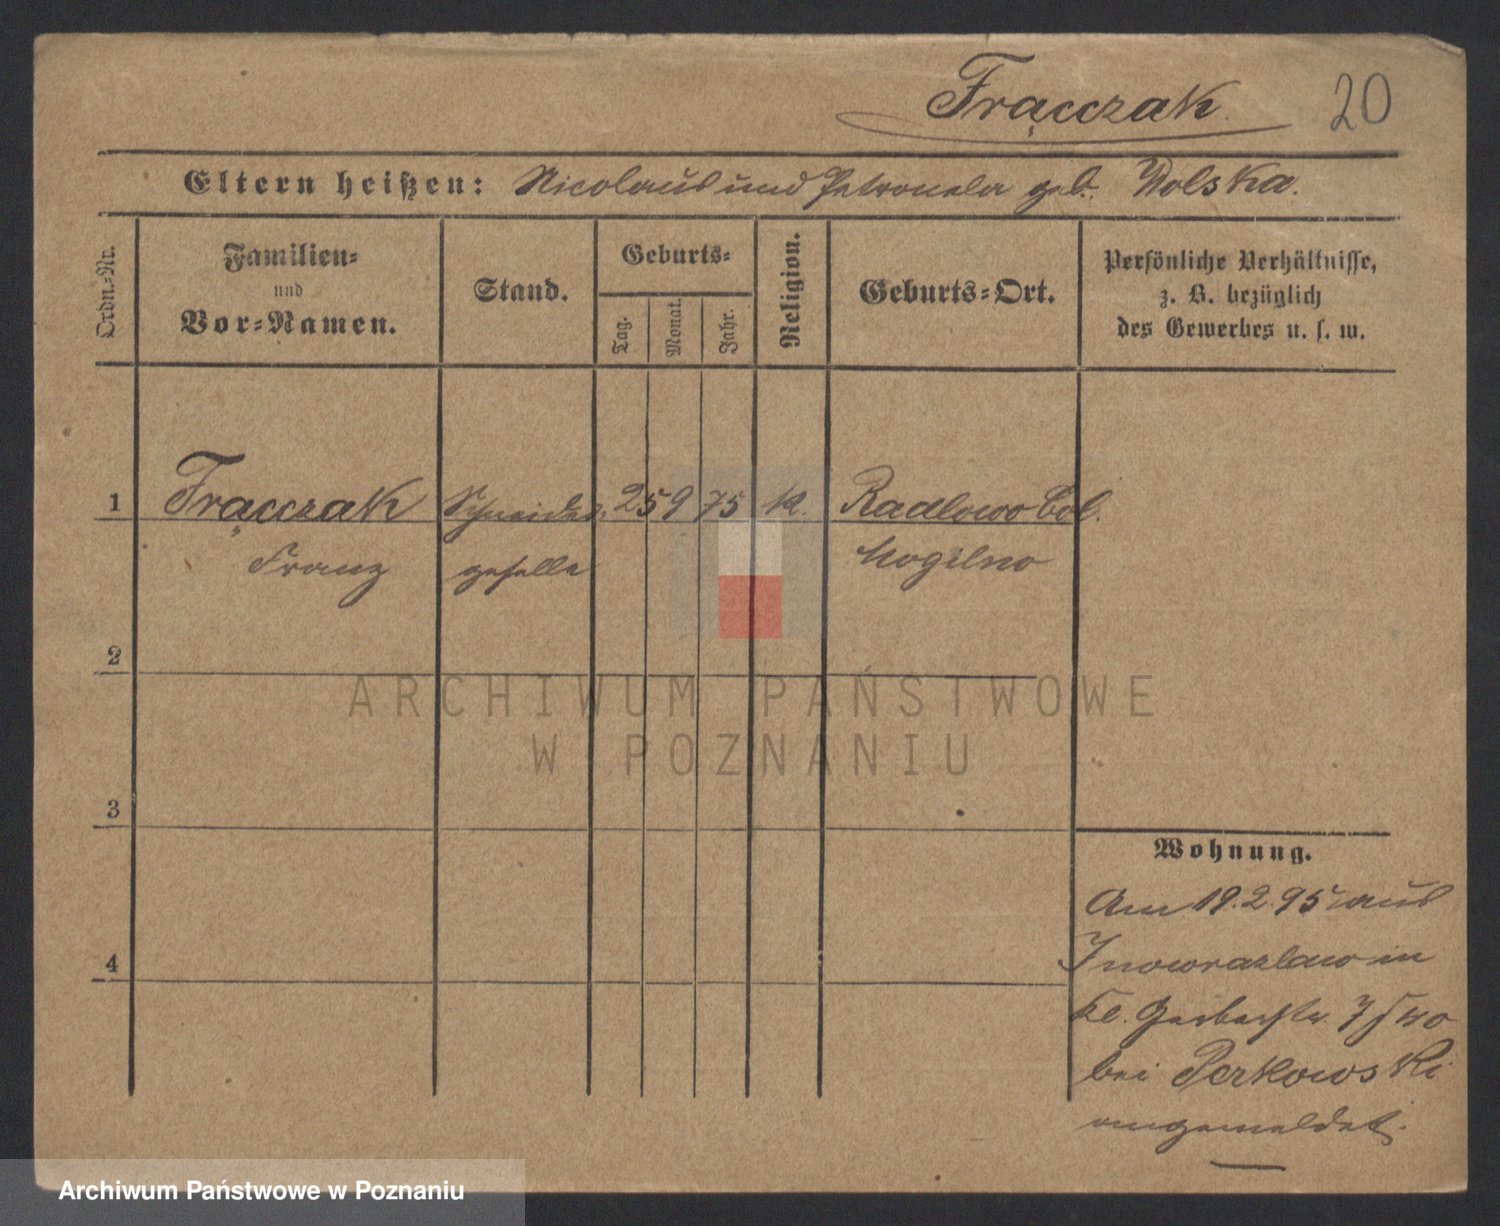 Frącczak 20
Eltern heißen: Nicolaus und Petronela geb. Wolska.
Ordn.-Nr.
Familien-
und
Vor-Namen.
Stand.
Geburts-
Tag.
Monat.
Jahr.
Religion.
Geburts-Ort.
Persönliche Verhältnisse,
z. B. bezüglich
des Gewerbes u. s. w.
1 Frącczak Schneider 25 9 75 K. Radlowo
Franz geselle Mogilno
2
3
4
Wohnung.
Am 19.2.95 aus
Inowrazlaw in
Kl. Gerberstr.
bei Perkowski
angemeldet.
ARCHIWUM PAŃSTWOWE
W POZNANIU
Archiwum Państwowe w Poznaniu